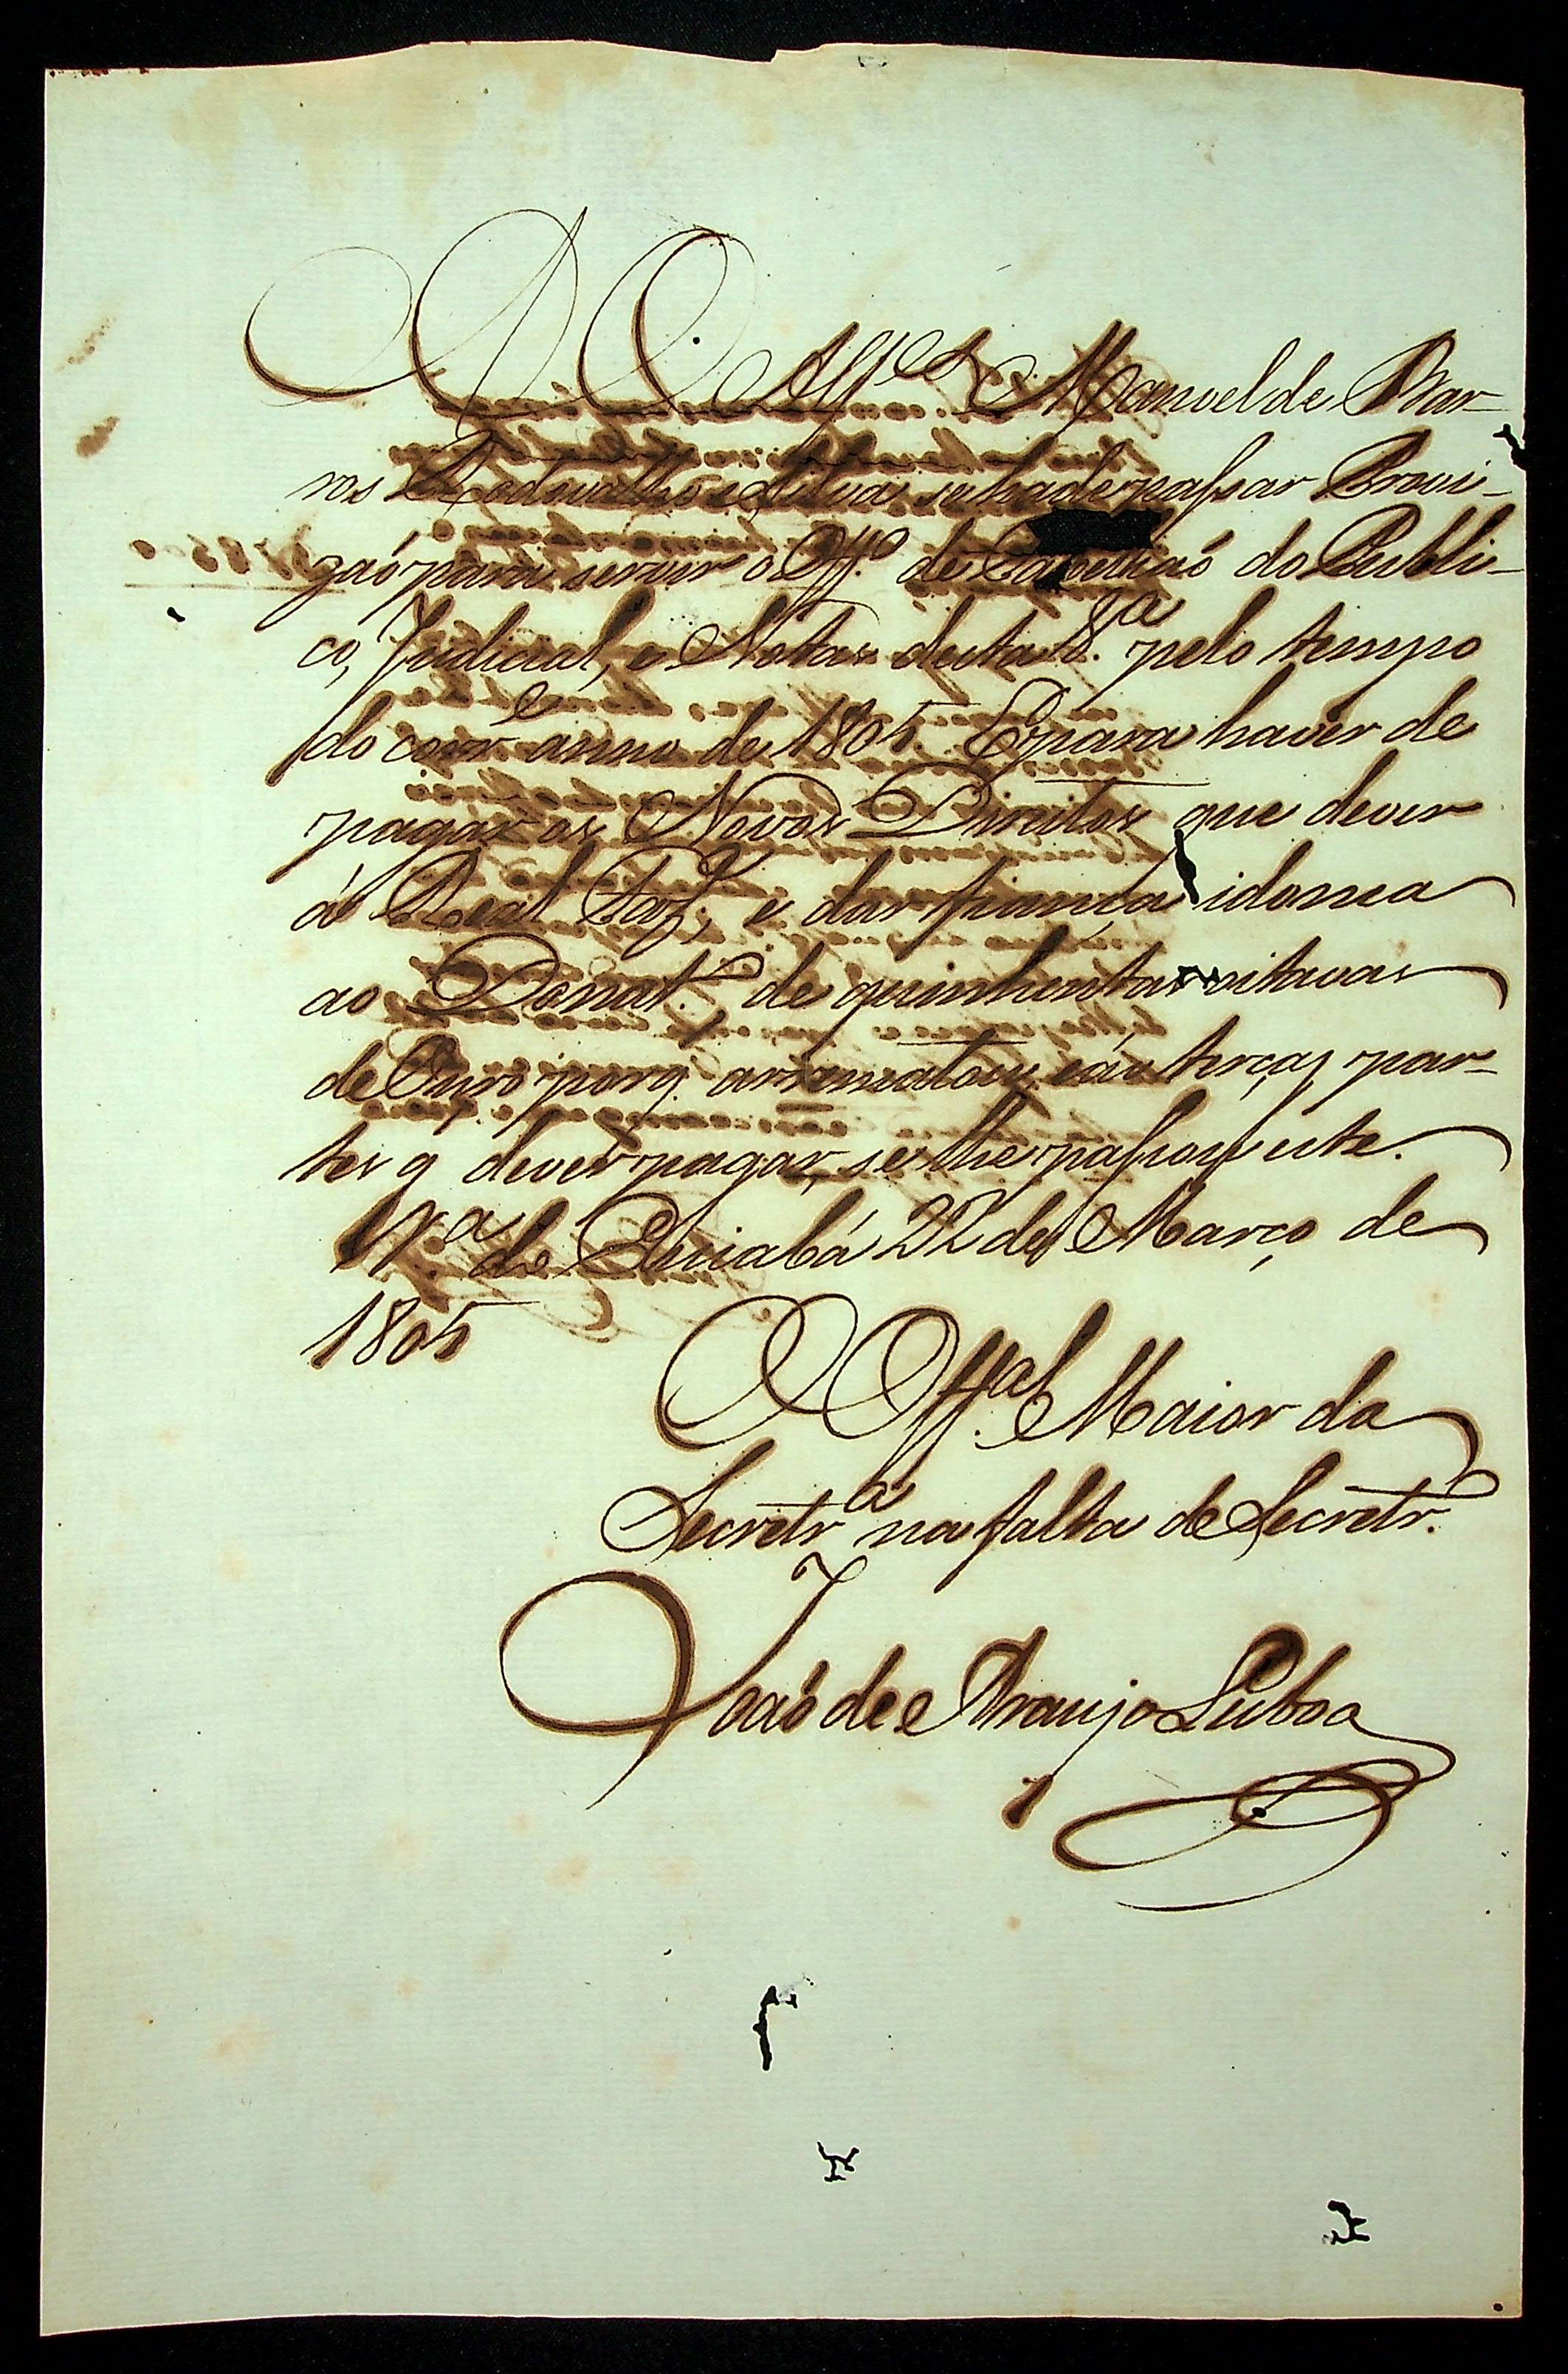 Ao Alf.es Manoel de Bar-
ros Rodovalho e Silva, se ha de passar Provi-
zaó para servir o Off.o de Tabelliaó do Publi-
co, Judicial, e Notas desta V.a pelo tempo
do corr.e anno de 1805. E para haver de
pagar os Novos Direitos que dever
á Real Faz.a e dar fiança idonea
ao Donat.o de quinhentas oitavas
de Ouro porq. arrematou, e ás terças par-
tes q dever pagar, se lhe passou este.
V.a de Cuiabá 22 de Março de
1805
O Off.al Maior da
Secretr.a na falta de Secretr.o
Joaó de Araujo Lisboa